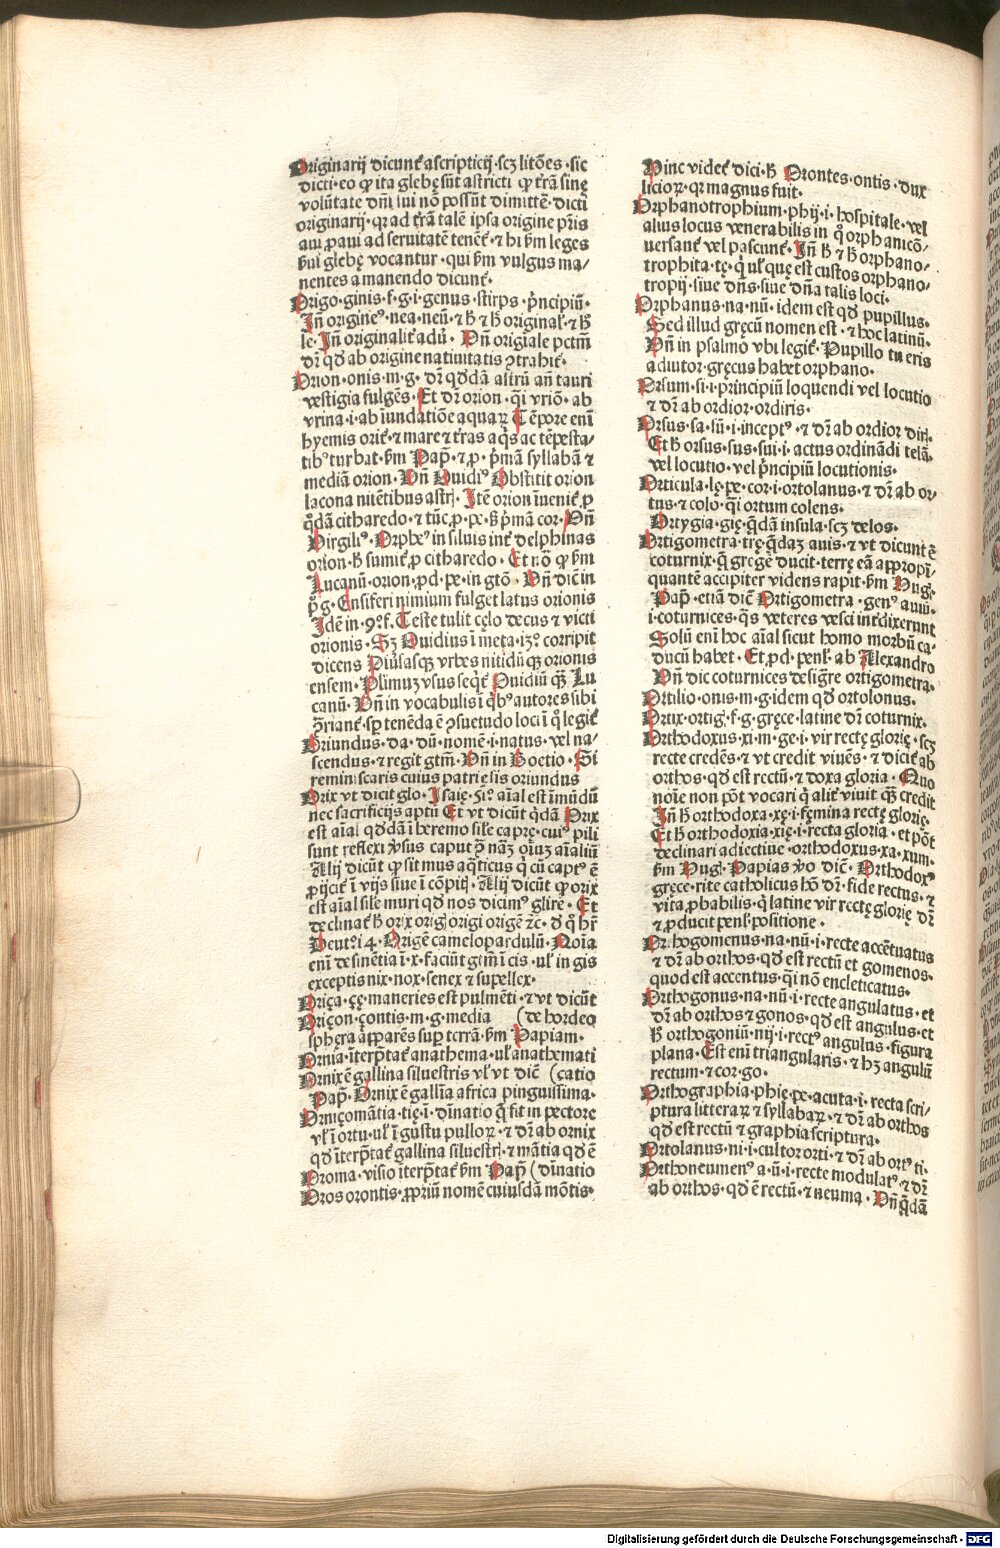 Originarij dicunt᷒ ascripticij·scꝫ litōes·sic
dicti·eo ꝙ ita glebę sūt astricti ꝙ t̄rā sine
volūtate dn̄i sui nō possūt dimittē·dicti
originarij·qr ad t̄rā talē ipsa origine pr̄is
aui ꝓaui ad seruitatē tenēt᷒·⁊ hi s̄m leges
s̄ui glebę vocantur·qui s̄m vulgus ma⸗
nentes a manendo dicunt᷒·
Origo·ginis·f·g·i·genus·stirps·pͥncipiū·
Jn̄ origineꝰ·nea·neū·⁊ h̄ ⁊ h̄ original᷒·⁊ h̄
le·Jn̄ originalit᷒ adū·Vn̄ origiale pctm̄
dr̄ qd̄ ab origine natiuitatis ꝯtrahit᷒·
Orion·onis·m·g·dr̄ qd̄dā astrū an̄ tauri
vestigia fulgēs·Et dr̄ orion·q̄i vriō·ab
vrina·i·ab īundatiōe aquaꝝ Tēpore eni
hyemis orit᷒·⁊ mare ⁊ t̄ras aq̄s ac tēpesta⸗
tibꝰ turbat·s̄m Pap̄·⁊ ꝓ·pͥmā syllabā ⁊
mediā orion·Vn̄ Ouidiꝰ Obstitit orion
lacona nitētibus astr᷒·Jtē orion īuenit᷒ ꝓ
qͦdā citharedo·⁊ tūc ꝓ·pe·s̄ pͥmā cor·Vn̄
Virgiliꝰ·Orpheꝰ in siluis int᷒ delphinas
orion·h̄ sumit᷒ ꝓ citharedo·Et nō ꝙ s̄m
Lucanū·orion·ꝓd·pe·in gtō·Vn̄ dic̄ in
pͦ g·Ensiferi nimium fulget latus orionis
Jdē in·9ͦ·f·Teste tulit cęlo decus ⁊ victi
orionis·Sꝫ Ouidius i meta·13ͦ corripit
dicens Diūsasqꝫ vrbes nitidūqꝫ orionis
ensem·Plīmuꝫ vsus seqͥt᷒ Ouidiū qꝫ Lu
canū·Vn̄ in vocabulis ī qͥbꝰ autores sibi
ꝯ̄riant᷒·sꝑ tenēda ē ꝯsuetudo loci ī qͦ legit᷒
Oriundus·da·dū·nomē·i·natus·vel na⸗
scendus·⁊ regit gtm̄·Vn̄ in Boetio·Si
reminiscaris cuius patrię sis oriundus
Orix vt dicit glo·Jsaię·51ͦ aīal est īmūdū
nec sacrificijs aptū Et vt dicūt qͥdā Orix
est aīal qd̄dā ī heremo sil᷒e caprę·cuiꝰ pili
sunt reflexi v̓sus caput p̄ nāꝫ oīuꝫ aīaliū
Alij dicūt ꝙ sit mus aq̄ticus qͥ cū captꝰ ē
ꝓijcit᷒ ī vijs siue ī cōpitꝭ·Alij dicūt ꝙ orix
est aīal sil᷒e muri qd̄ nos dicimꝰ glirē·Et
declinat᷒ h̄ orix origꝭ origi origē ⁊c·d̄ qͦ hr̄
Deut͛·14·Origē camelopardulū·Noīa
enī desinētia ī·x·faciūt gtm̄ ī cis·ul᷒ in gis
exceptis nix·nox·senex ⁊ supellex·
Oriça·çę·maneries est pulmēti·⁊ vt dicūt
Oriçon·çontis·m·g·media (de hordeo
sphęra apparēs suꝑ terrā·s̄m Papiam·
Ornia·īterp̄tat᷒ anathema·ul᷒ anathemati
Ornix ē gallina siluestris vl᷒ vt dic̄ (çatio
Pap̄·Ornix ē gallīa africa pinguissima·
Orniçomātia·tię·ī·diuinatio q̄ fit in pectore
vl᷒ ī ortu·ul᷒ ī gustu pulloꝝ·⁊ dr̄ ab ornix
qd̄ īterp̄tat᷒ gallina siluestrꝭ ⁊ mātia qd̄ ē
Oroma·visio īterp̄tat᷒ s̄m Pap̄ (diuinatio
Oros orontis·ꝓpriū nomē cuiusdā mōtis·
Hinc videt᷒ dici·h̄ Orontes·ontis·dux
licioꝝ·qr magnus fuit·
Orphanotrophium·phij·i·hospitale·vel
alius locus venerabilis in qͦ orphanicō⸗
uersant᷒ vel pascunt᷒·Jn̄ h̄ ⁊ h̄ orphano⸗
trophita·tę·qͥ ul᷒ quę est custos orphano⸗
tropij·siue dn̄s·siue dn̄a talis loci·
Orphanus·na·nū·idem est qd̄ pupillus·
Sed illud gręcū nomen est·⁊ hoc latinū·
Vn̄ in psalmō vbi legit᷒·Pupillo tu eris
adiutor·gręcus habet orphano·
Orsum·si·i·principiū loquendi vel locutio
⁊ dr̄ ab ordior·ordiris·
Orsus·sa·sū·i·inceptꝰ·⁊ dr̄ ab ordior diris·
Et h̄ orsus·sus·sui·i·actus ordināndi telā·
vel locutio·vel pͥncipiū locutionis·
Orticula·lę·pe·cor·i·ortolanus·⁊ dr̄ ab or⸗
tus·⁊ colo·q̄i ortum colens·
Ortygia·gię·q̄dā insula·scꝫ delos·
Ortigometra·trę·q̄daꝫ auis·⁊ vt dicunt ē
coturnix·q̄ gregē ducit·terrę eā appropī⸗
quantē accipiter videns rapit·s̄m Hug᷒·
Pap̄·etiā dic̄ Ortigometra·genꝰ auiū·
i·coturnices·qs veteres vesci int᷒dixerunt
Solū enī hoc aīal sicut homo morbū ca⸗
ducū habet·Et ꝓd·penl᷒·ab Alexandro
Vn̄ dic coturnices desigͣre ortigometra·
Ortilio·onis·m·g·idem qd̄ ortolonus·
Ortix·ortigꝭ·f·g·gręce·latine dr̄ coturnix·
Orthodoxus·xi·m·ge·i·vir rectę glorię·scꝫ
recte credēs·⁊ vt credit viuēs·⁊ dicit᷒ ab
orthos·qd̄ est rectū·⁊ doxa gloria·Quo
noīe non pōt vocari q̄ alit᷒ viuit qꝫ credit
Jn̄ h̄ orthodoxa·xę·i·femina rectę glorię·
Et h̄ orthodoxia·xię·i·recta gloria·et pōt
declinari adiectiue·orthodoxus·xa·xum·
s̄m Hug᷒·Papias v̓o dic̄·Orthodoxꝰ
gręce·rite catholicus hō dr̄·fide rectus·⁊
vita ꝓbabilis·qͥ latine vir rectę glorię dr̄
⁊ ꝓducit penl᷒·positione·
Orthogomenus·na·nū·i·recte accētuatus
⁊ dr̄ ab orthos·qd̄ est rectū et gomenos·
quod est accentus·q̄i nō encleticatus·
Orthogonus·na·nū·i·recte angulatus·et
dr̄ ab orthos ⁊ gonos·qd̄ est angulus·et
h̄ orthogoniū·nij·i·rectꝰ angulus·figura
plana·Est enī triangularis·⁊ hꝫ angulū
rectum·⁊ cor·go·
Orthographia·phię·pe·acuta·i·recta scri⸗
ptura litteraꝝ ⁊ syllabaꝝ·⁊ dr̄ ab orthos
qd̄ est rectū ⁊ graphia scriptura·
Ortolanus·ni·i·cultor orti·⁊ dr̄ ab ortꝰ ti·
Orthoneumenꝰ·a·ū·i·recte modulatꝰ·⁊ dr̄
ab orthos·qd̄ ē rectū·⁊ neuma·Vn̄ q̄dā
Digitalisierung gefördert durch die Deutsche Forschungsgemeinschaft - DFG